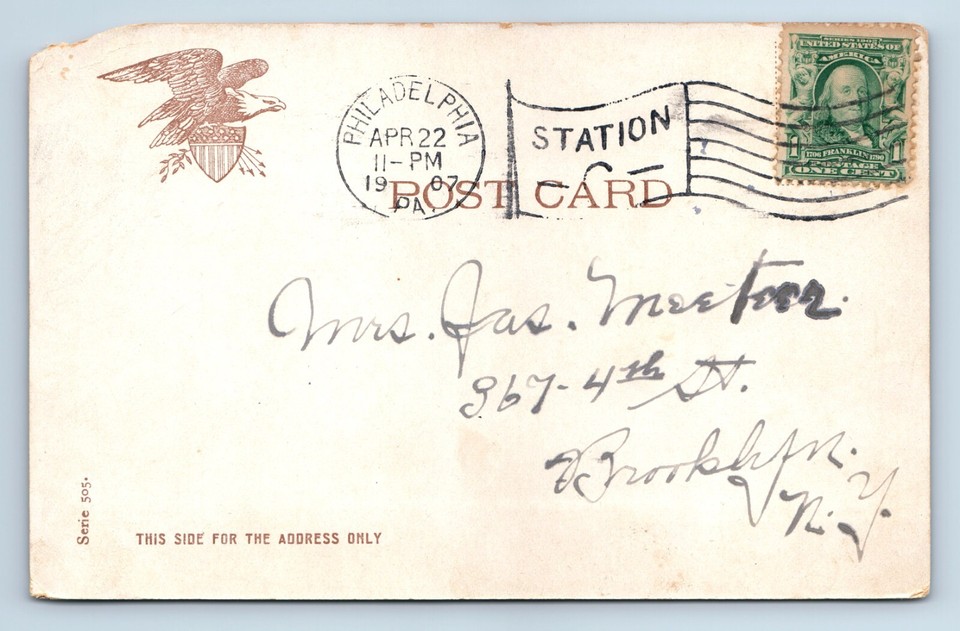 PHILADELPHIA
APR 22
11-PM
1907
PA.
STATION
- C -
SERIES 1902
UNITED STATES OF
AMERICA
1 1
1706 FRANKLIN 1790
POSTAGE
ONE CENT
POST CARD
Mrs. Jas. Meeteer.
367-4th St.
Brooklyn.
N.Y.
Serie 505.
THIS SIDE FOR THE ADDRESS ONLY